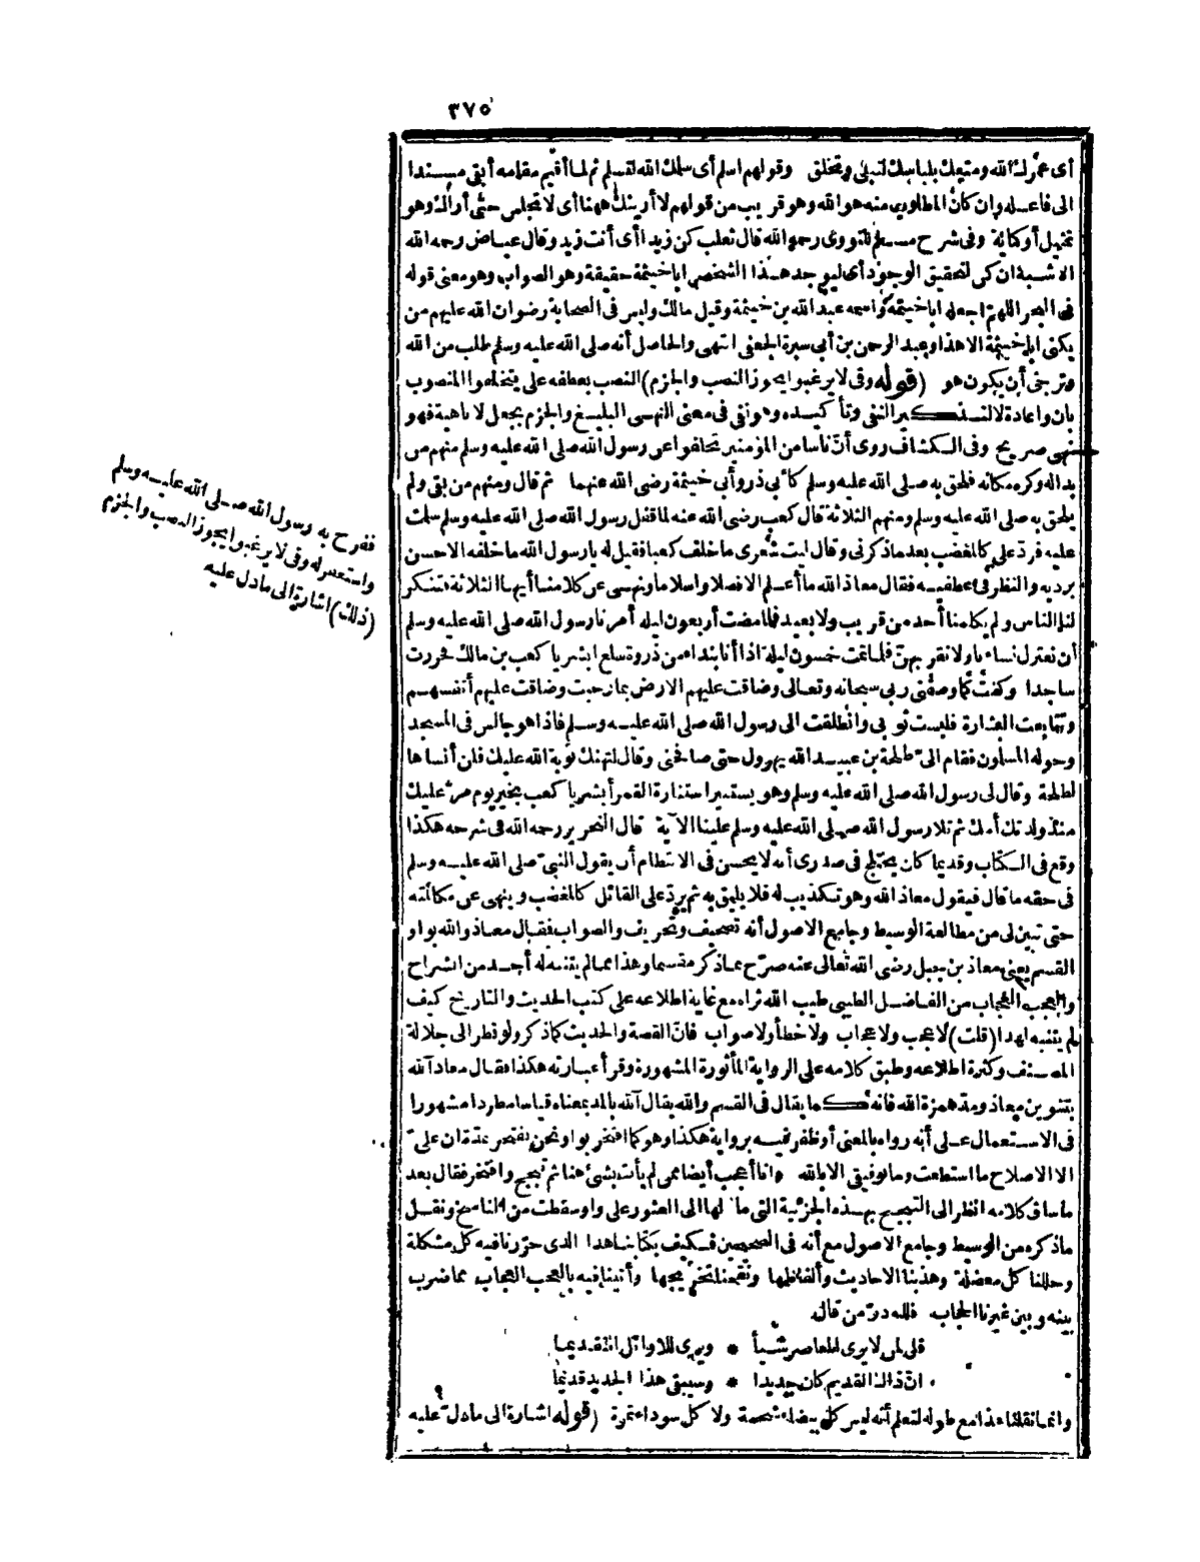 ٣٧٥
أى عمرك الله ومتعك بلباسك لتبلى وتخلق وقولهم اسلم أى سلمك الله لتسلم ثم لما أقيم مقامه أبقى مسندا
الى فاعله وان كان المطلوب منه هو الله وهو قريب من قولهم لا أرينك ههنا أى لا تجلس حتى أراك وهو
تمثيل أو كناية وفى شرح مسلم للنووى رحمه الله قال ثعلب كن زيدا أى أنت زيد وقال عياض رحمه الله
الاشبه ان كن لتحقيق الوجود أى ليوجد هذا الشخص اباخيثمة حقيقة وهو الصواب وهو معنى قوله
فى البحر اللهم اجعله اباخيثمة واسمه عبد الله بن خيثمة وقيل مالك وليس فى الصحابة رضوان الله عليهم من
يكنى اباخيثمة الا هذا وعبد الرحمن بن أبى سبرة الجعفى انتهى والحاصل أنه صلى الله عليه وسلم طلب من الله
وترجى أن يكون هو (قوله وفى لا يرغبوا يجوز النصب والجزم) النصب بعطفه على يتخلفوا المنصوب
بان واعادة لا لتذكير النفى وتأكيده وهو نفى فى معنى النهى البليغ والجزم بجعل لا ناهية فهو
نهى صريح وفى الكشاف روى أن ناسا من المؤمنين تخلفوا عن رسول الله صلى الله عليه وسلم منهم من
بداله وكره مكانه فلحق به صلى الله عليه وسلم كأبى ذر وأبى خيثمة رضى الله عنهما ثم قال ومنهم من بقى ولم
يلحق به صلى الله عليه وسلم ومنهم الثلاثة قال كعب رضى الله عنه لما قفل رسول الله صلى الله عليه وسلم سلمت
عليه فرد على كالمغضب بعد ماذكرنى وقال ليت شعرى ما خلف كعبا فقيل له يا رسول الله ما خلفه الا حسن
برديه والنظر فى عطفيه فقال معاذ الله ما أعلم الا فضلا واسلاما ونهى عن كلامنا أيها الثلاثة فتنكر
لنا الناس ولم يكلمنا أحد من قريب ولا بعيد فلما مضت أربعون ليلة أمرنا رسول الله صلى الله عليه وسلم
أن نعتزل نساءنا ولا نقربهن فلما تمت خمسون ليلة اذا أنا بنداء من ذروة سلع ابشر يا كعب بن مالك فخررت
ساجدا وكنت كما وصفنى ربى سبحانه وتعالى وضاقت عليهم الارض بما رحبت وضاقت عليهم أنفسهم
وتتابعت البشارة فلبست ثوبى وانطلقت الى رسول الله صلى الله عليه وسلم فاذا هو جالس فى المسجد
وحوله المسلمون فقام الى طلحة بن عبيد الله يهرول حتى صافحنى وقال لتهنك توبة الله عليك فلن أنساها
لطلحة وقال لى رسول الله صلى الله عليه وسلم وهو يستنير استنارة القمر أبشر يا كعب بخير يوم مر عليك
منذ ولدتك أمك ثم تلا رسول الله صلى الله عليه وسلم علينا الآية قال النحرير رحمه الله فى شرحه هكذا
وقع فى الكتاب وقديما كان يختلج فى صدرى أنه لا يحسن فى الانتظام أن يقول النبى صلى الله عليه وسلم
فى حقه ما قال فيقول معاذ الله وهو تكذيب له فلا يليق به ثم يرد على القائل كالمغضب وينهى عن مكالمته
حتى تبين لى من مطالعة الوسيط وجامع الاصول أنه تصحيف وتحريف والصواب فقال معاذ والله بواو
القسم يعنى معاذ بن جبل رضى الله تعالى عنه صرح بما ذكر مقسما وهذا مما لم يتنبه له أحد من الشراح
والعجب العجاب من الفاضل الطيبى طيب الله ثراه مع غاية اطلاعه على كتب الحديث والتاريخ كيف
لم يتنبه لهذا (قلت) لا عجب ولا عجاب ولا خطأ ولا صواب فان القصة والحديث كما ذكر ولو نظر الى جلالة
المصنف وكثرة اطلاعه وطبق كلامه على الرواية المأثورة المشهورة وقرأ عبارته هكذا فقال معاذ آلله
بتنوين معاذ ومد همزة الله فانه كما يقال فى القسم والله يقال آلله بالمد بمعناه قياسا مطردا مشهورا
فى الاستعمال على أنه رواه بالمعنى أو ظفر فيه برواية هكذا وهو كما افتخر بواو ونحن نفتخر بمدة ان على
الا الاصلاح ما استطعت وما توفيقى الا بالله وانا أعجب أيضا ممن لم يأت بشئ هنا ثم تبجح وافتخر فقال بعد
ما ساق كلامه انظر الى التبجح بهذه الجزئية التى مآلها الى العثور على واو سقطت من الناسخ ونقل
ما ذكره من الوسيط وجامع الاصول مع أنه فى الصحيحين فكيف بكتابنا هذا الذى حررنا فيه كل مشكلة
وحللنا كل معضلة وهذبنا الاحاديث وألفاظها وتتبعنا تخريجها وأتينا فيه بالعجب العجاب مما ضرب
بينه وبين غيرنا الحجاب فلله در من قال
قل لمن لا يرى المعاصر شيأ * ويرى للاوائل التقديما
ان ذاك القديم كان جديدا * وسيبقى هذا الجديد قديما
وانما نقلنا هذا مع طوله لتعلم أنه ليس كل بيضاء شحمة ولا كل سوداء تمرة (قوله اشارة الى ما دل عليه
ففرح به رسول الله صلى الله عليه وسلم
واستغفر له وفى لا يرغبوا يجوز النصب والجزم
(ذلك) اشارة الى ما دل عليه